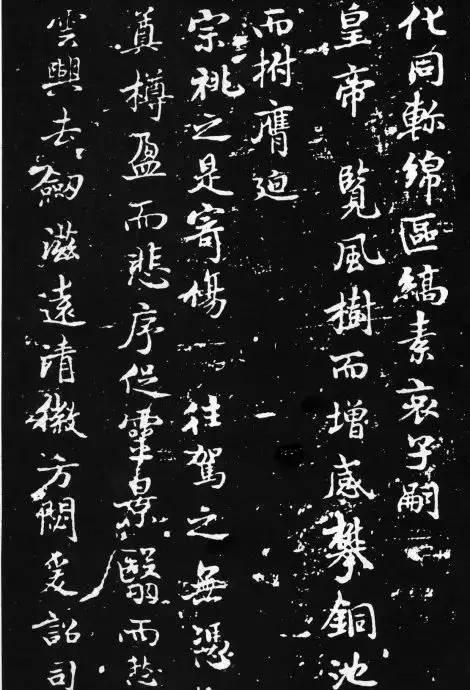 化同軫綿區縞素哀子嗣
皇帝 覽風樹而增感攀銅池
而拊膺
宗祧之是寄傷 往駕之無憑
奠樽盈而悲序促靈景翳而愁
雲興去劒滋遠清徽方閟爰詔司